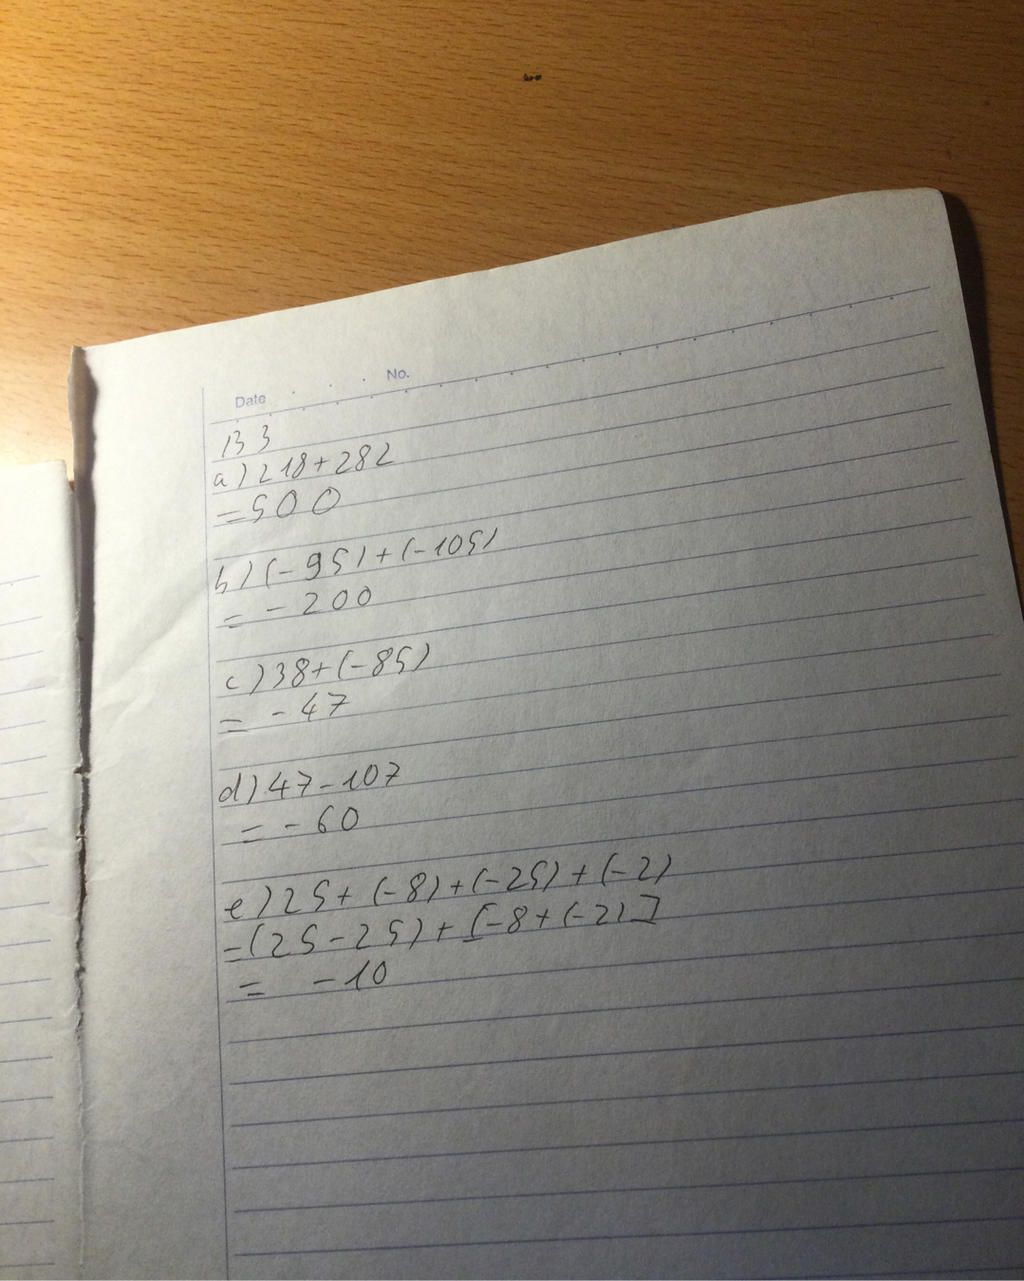 Date No.
B3
a) 218+282
= 500
b) (-95)+(-105)
= -200
c) 38+(-85)
= -47
d) 47-107
= -60
e) 25+(-8)+(-25)+(-2)
=(25-25)+[-8+(-2)]
= -10